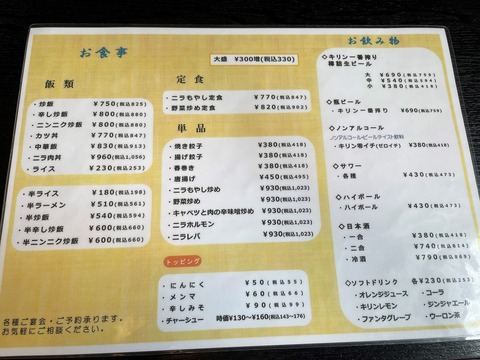 お食事
大盛 ¥300増(税込330)
飯類
・炒飯 ¥750(税込825)
・辛し炒飯 ¥800(税込880)
・ニンニク炒飯 ¥800(税込880)
・カツ丼 ¥770(税込847)
・中華飯 ¥830(税込913)
・ニラ肉丼 ¥960(税込1,056)
・ライス ¥230(税込253)
・半ライス ¥180(税込198)
・半ラーメン ¥510(税込561)
・半炒飯 ¥540(税込594)
・半辛し炒飯 ¥600(税込660)
・半ニンニク炒飯 ¥600(税込660)
各種ご宴会・ご予約承ります。
お気軽にご相談ください。
定食
・ニラもやし定食 ¥770(税込847)
・野菜炒め定食 ¥820(税込902)
単品
・焼き餃子 ¥380(税込418)
・揚げ餃子 ¥380(税込418)
・春巻き ¥380(税込418)
・唐揚げ ¥450(税込495)
・ニラもやし炒め ¥930(税込1,023)
・野菜炒め ¥930(税込1,023)
・キャベツと肉の辛味噌炒め ¥930(税込1,023)
・ニラホルモン ¥930(税込1,023)
・ニラレバ ¥930(税込1,023)
トッピング
・にんにく ¥50(税込55)
・メンマ ¥60(税込66)
・辛しみそ ¥90(税込99)
・チャーシュー 時価¥130～¥160(税込143～176)
お飲み物
◇キリン一番搾り
樽詰生ビール
大 ¥690(税込759)
中 ¥540(税込594)
小 ¥380(税込418)
◇瓶ビール
・キリン一番搾り ¥690(税込759)
◇ノンアルコール
ノンアルコールビールテイスト飲料
・キリン零イチ(ゼロイチ) ¥380(税込418)
◇サワー
・各種 ¥430(税込473)
◇ハイボール
・ハイボール ¥430(税込473)
◇日本酒
・一合 ¥380(税込418)
・二合 ¥740(税込814)
・冷酒 ¥790(税込869)
◇ソフトドリンク 各¥230(税込253)
・オレンジジュース ・コーラ
・キリンレモン ・ジンジャエール
・ファンタグレープ ・ウーロン茶